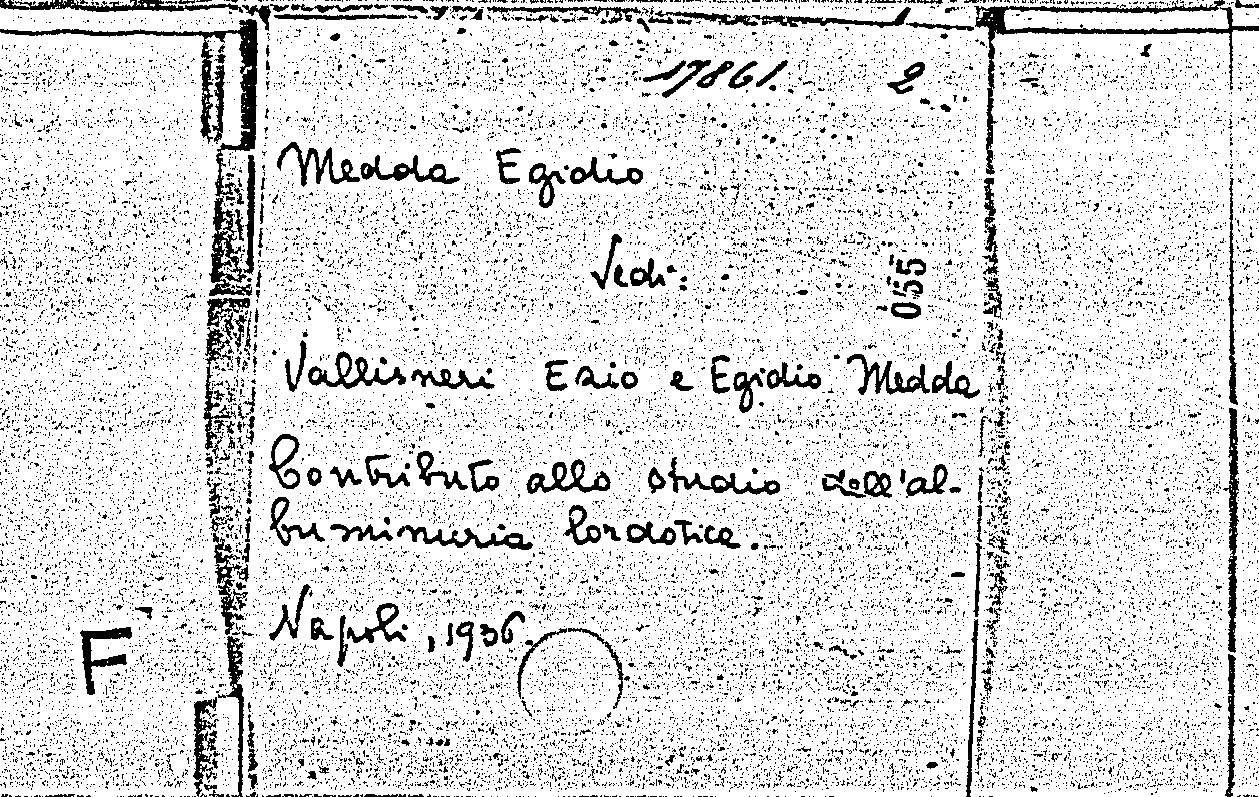 17861. 2
Medda Egidio
Vedi:
055
Vallisneri Ezio e Egidio Medda
Contributo allo studio dell'al-
buminuria lordotica.
Napoli, 1936.
F